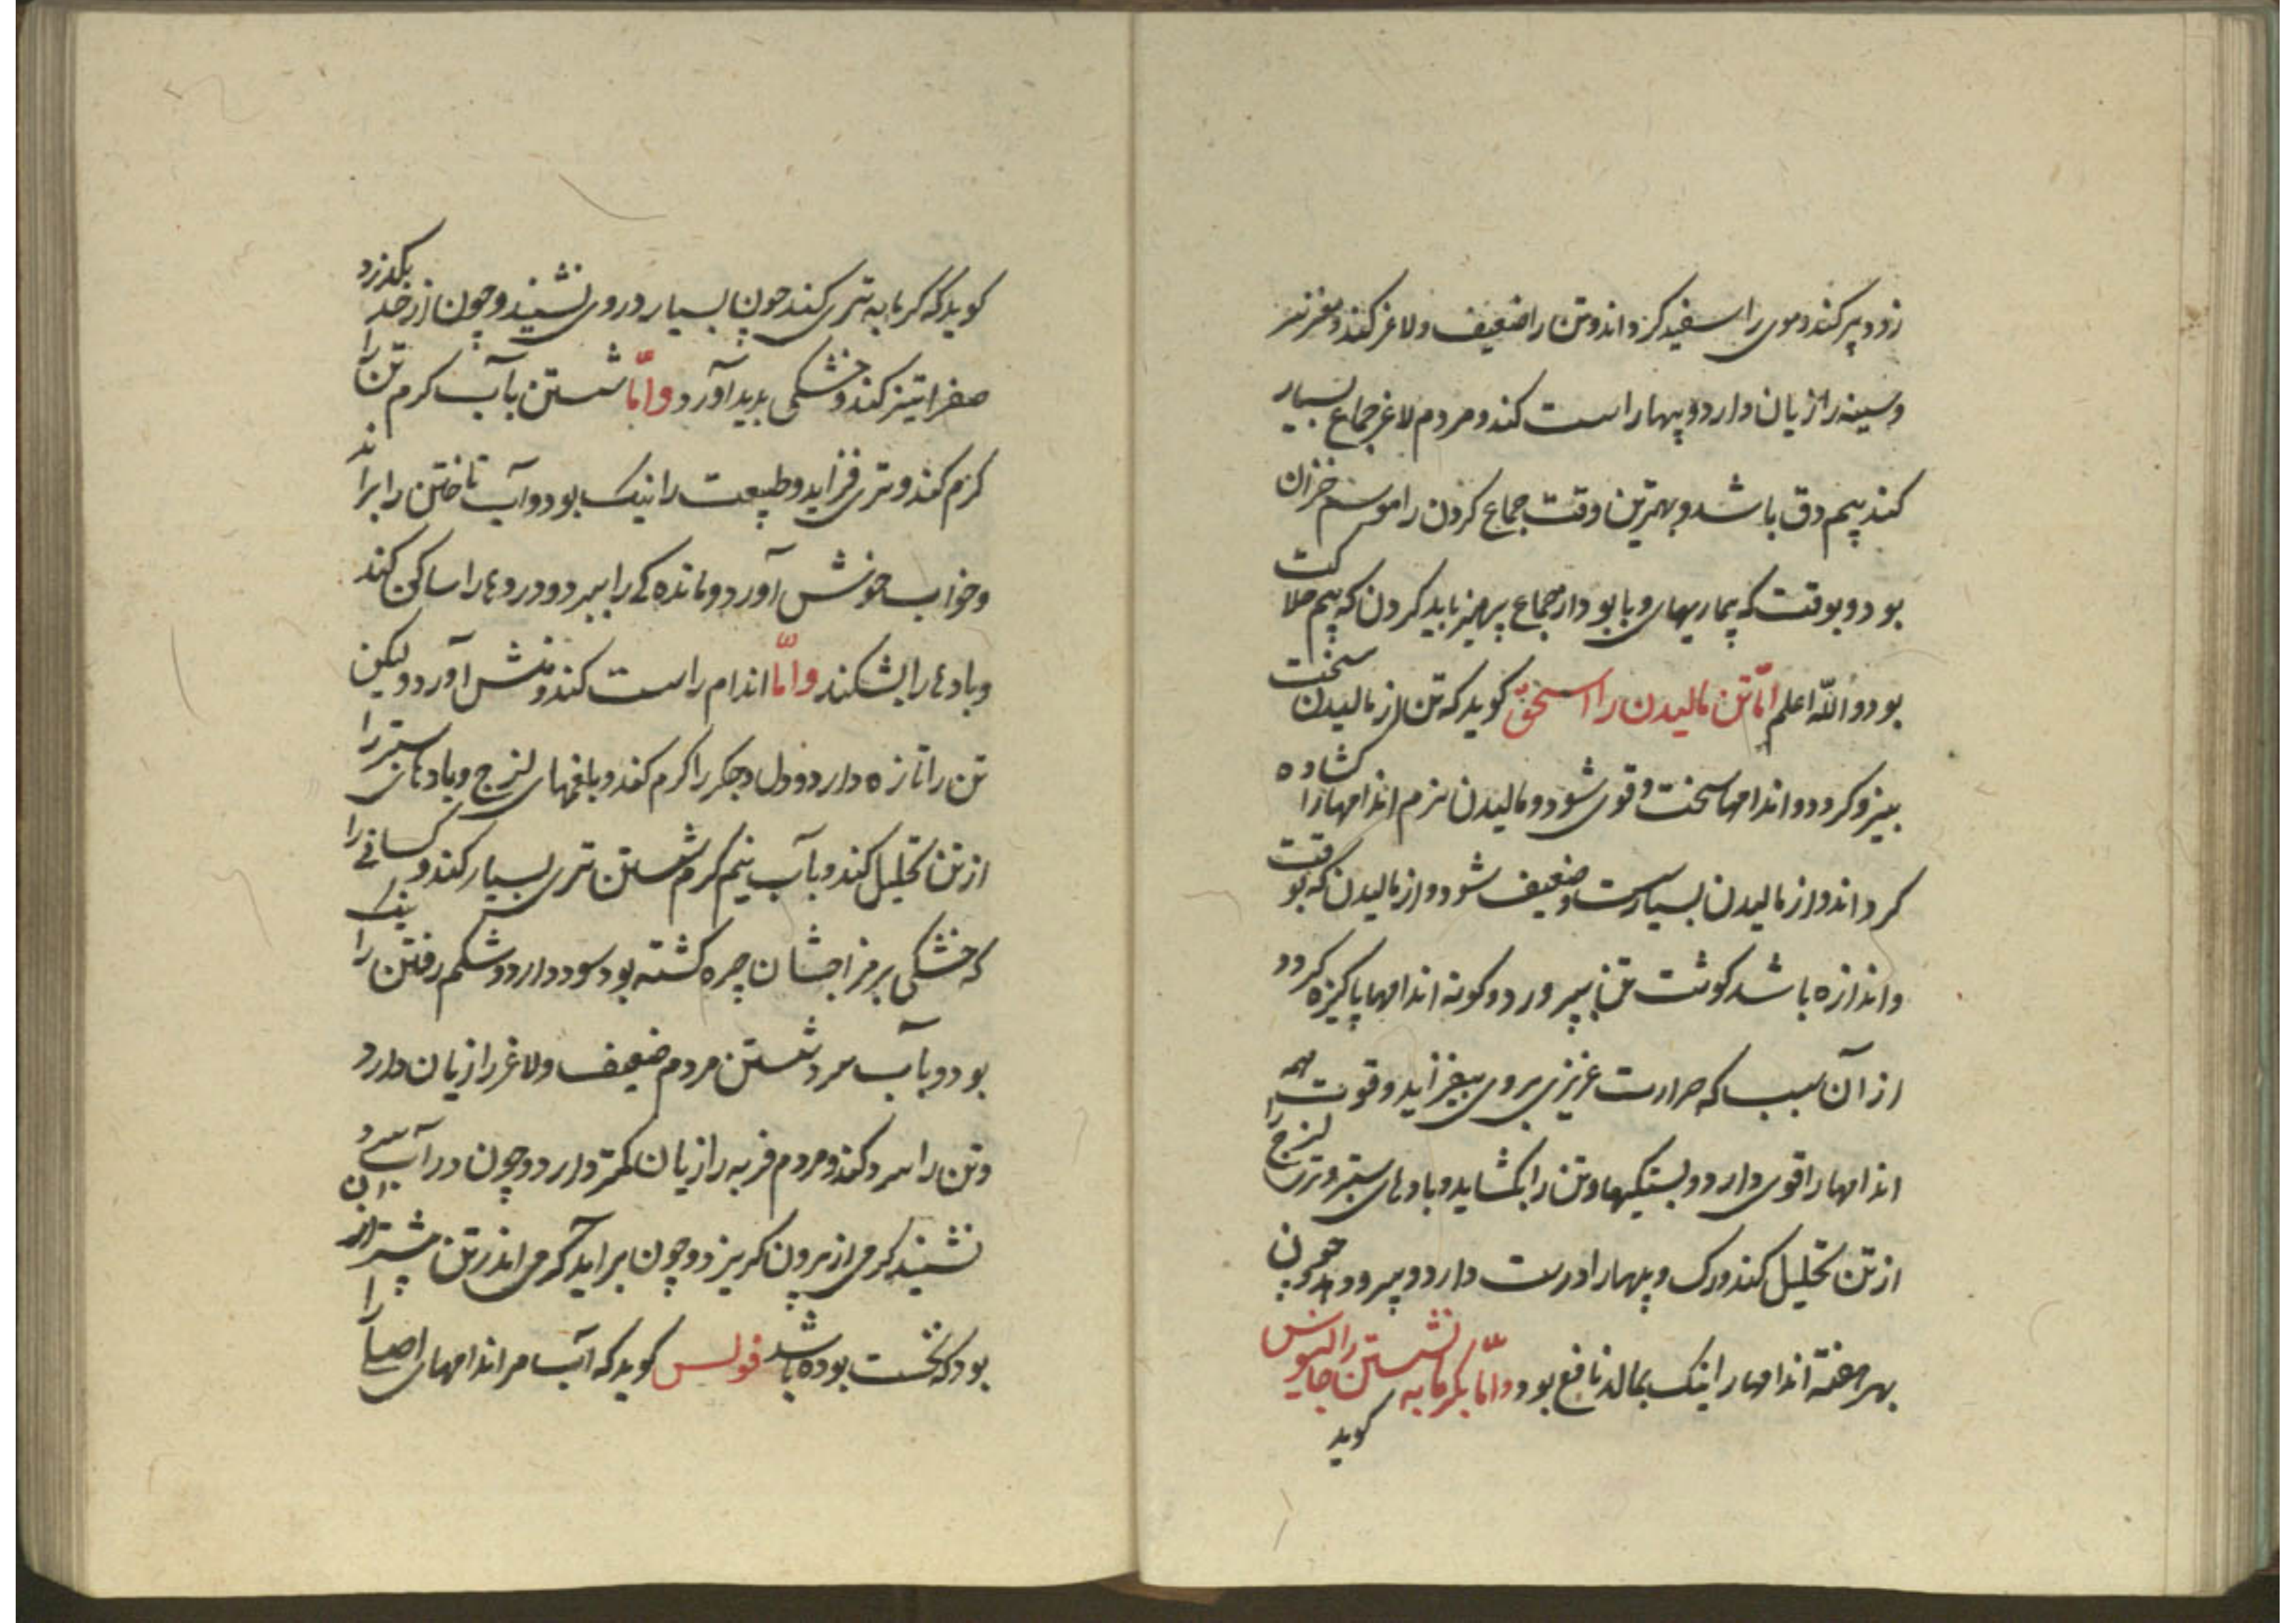 زود پیر کند و موی را سفید کرداند و تن را ضعیف و لاغر کند و مغز سر
و سینه را زیان دارد و پیها را سست کند و مردم لاغر جماع بسیار
کند بیم دق باشد و بهترین وقت جماع کردن را موسم خزان
بود و بوقت که بیماریهای وبا بود از جماع پرهیز باید کردن که بیم هلاکت
بود والله اعلم امّا تن مالیدن را اسحق کوید که تن از مالیدن سخت
نیرو کرد و اندامها سخت و قوی شود و مالیدن نرم اندامها را کشاده
کرداند و از مالیدن بسیار سست و ضعیف شود و از مالیدن که بوقت
و اندازه باشد کوشت تن بپرورد و کونه اندامها پاکیزه کردد
از آن سبب که حرارت غریزی بروی بیفزاید و قوت همه
اندامها را قوی دارد و بستکیها و تن را بکشاید و بادهای ستبر و تری لزج را
از تن تحلیل کند و رک و پیها را درست دارد و بپرورد چون
بهر هفته اندامها را نیک بمالد نافع بود و امّا بکرمابه نشستن را جالینوس
کوید
کوید که کرمابه تری کند چون بسیار در وی نشیند و چون از حد بکذرد
صفرا تیز کند و خشکی پدید آورد و امّا شستن بآب کرم تن را
کرم کند و تری فزاید و طبیعت را نیک بود و آب تاختن را براند
و خواب خوش آورد و مانده کی را ببرد و دردها را ساکن کند
و بادها را بشکند و امّا اندام را سست کند و منش آورد ولیکن
تن را تازه دارد و دل و جکر را کرم کند و بلغمهای لزج و بادهای ستبر را
از تن تحلیل کند و بآب نیم کرم شستن تری بسیار کند و کسانی را
که خشکی بر مزاجشان چره کشته بود سود دارد و شکم رفتن را نیک
بود و بآب سرد شستن مردم ضعیف و لاغر را زیان دارد
و تن را سرد کند و مردم فربه را زیان کمتر دارد و چون در آب سرد
نشیند کرمی از برون کریزد و چون براید کرمی اندر تن بیشتر از آن
بود که نخست بوده باشد فولس کوید که آب مر اندامهای اصلی را